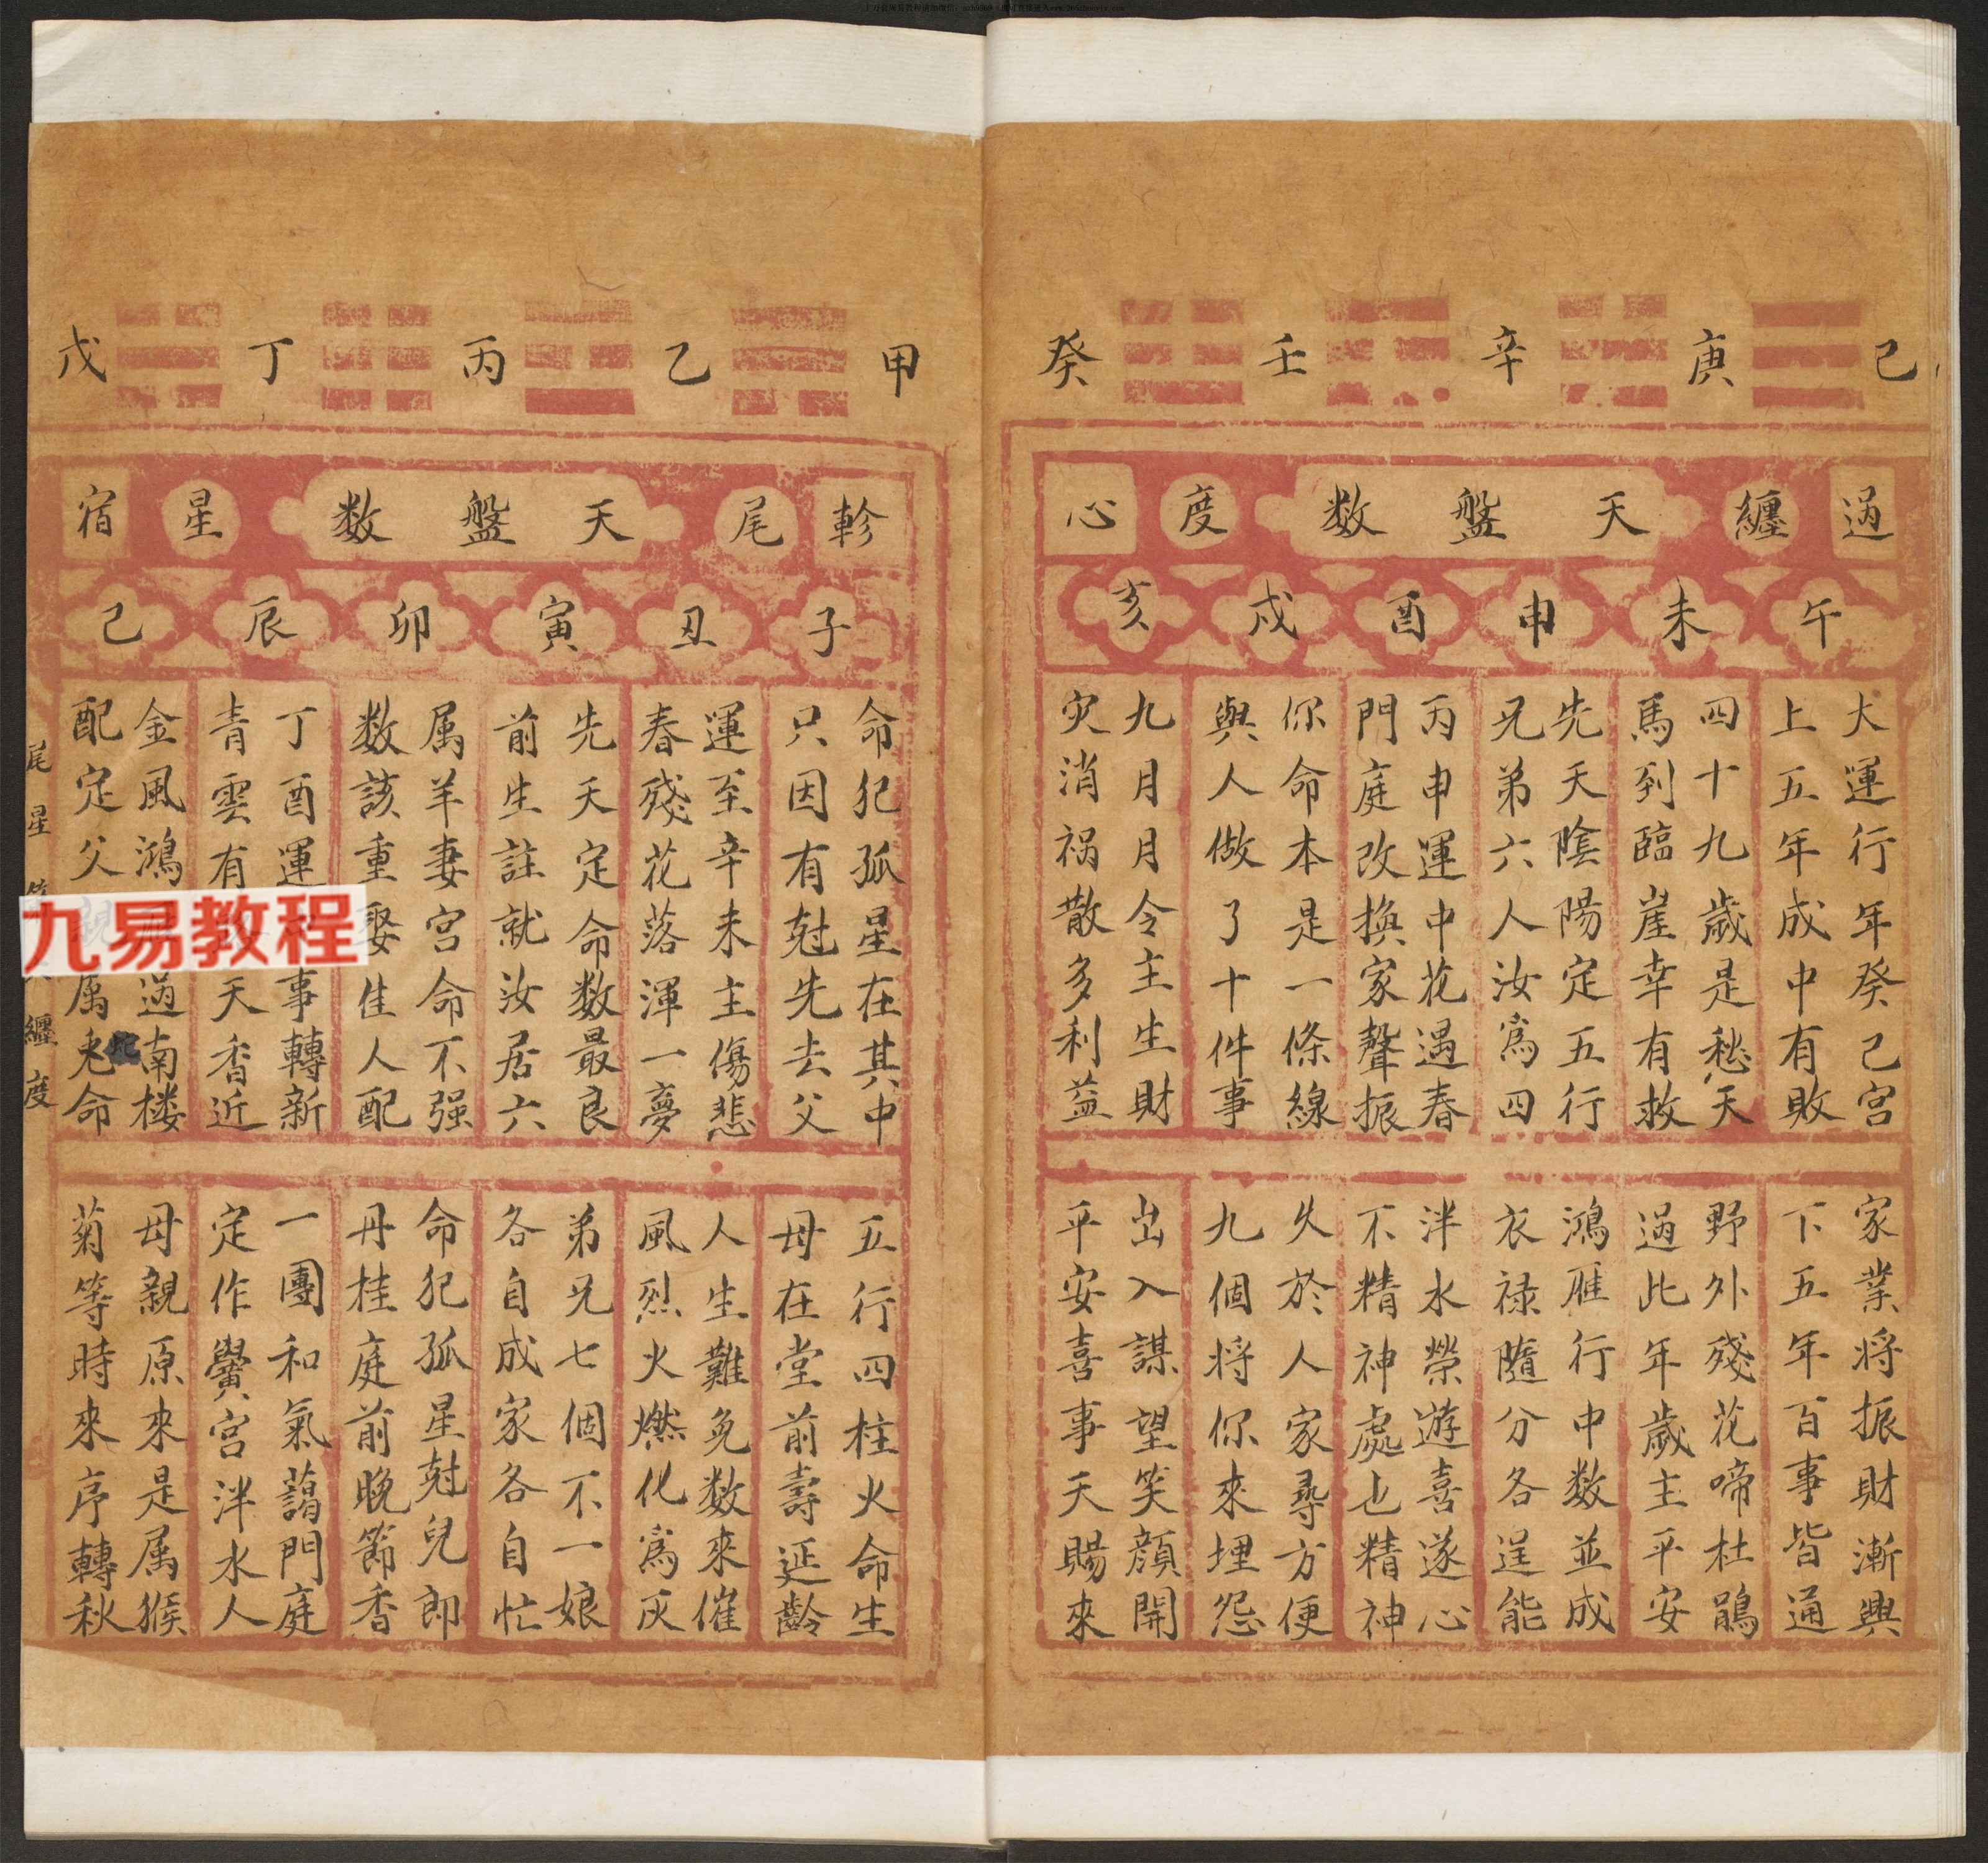 己 庚 辛 壬 癸
過 纏 天盤数 度 心
午 未 申 酉 戌 亥
大運行年癸己宮
上五年成中有敗
家業将振財漸興
下五年年百事皆通
四十九歲是愁天
馬到臨崖幸有救
野外殘花啼杜鵑
過此年歲主平安
先天陰陽定五行
兄弟六人汝為四
鴻雁行中数並成
衣禄隨分各逞能
丙申運中花遇春
門庭改換家聲振
泮水榮遊喜遂心
不精神處也精神
你命本是一條線
與人做了十件事
久於人家尋方便
九個将你來埋怨
九月月令主生財
灾消祸散多利益
出入謀望笑顔開
平安喜事天賜來
甲 乙 丙 丁 戊
軫 尾 天盤数 星 宿
子 丑 寅 卯 辰 己
命犯孤星在其中
只因有尅先去父
五行四柱火命生
母在堂前壽延齡
運至辛未主傷悲
春殘花落渾一夢
人生難免数來催
風烈火燃化為灰
先天定命数最良
前生註就汝居六
弟兄七個不一娘
各自成家各自忙
属羊妻宮命不强
数該重娶佳人配
命犯孤星尅兒郎
丹桂庭前晚節香
丁酉運事轉新
青雲有天香近
一團和氣藹門庭
定作黌宮泮水人
金風鴻過南楼
配定父属蛇命
母親原來是属猴
菊等時來序轉秋
尾星纏度
九易教程